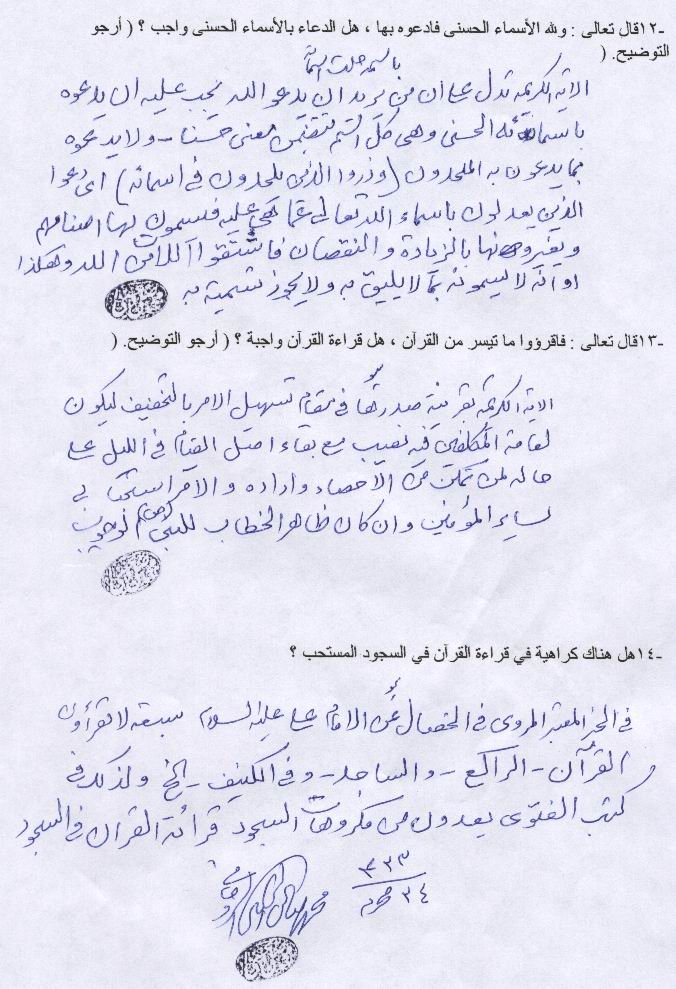 -١٢قال تعالى : ولله الأسماء الحسنى فادعوه بها ، هل الدعاء بالأسماء الحسنى واجب ؟ ( أرجو
التوضيح. (
باسمه جلت اسمائه
الاية الكريمة تدل على ان من يريد ان يدعو الله يجب عليه ان يدعوه
باسمائه الحسنى وهى كل اسم تتضمن معنى حسنا - ولا يدعوه
بما يدعون به الملحدون (وذروا الذين يلحدون في اسمائه) اى دعوا
الذين يعدلون باسماء الله تعالى عما هي عليه فيسمون بها اصنامهم
ويغيرونها بالزيادة والنقصان فاشتقوا اللات من الله وهكذا
او انه لا يسمونه بما لا يليق به ولا يجوز تسميته به
-١٣قال تعالى : فاقرؤوا ما تيسر من القرآن ، هل قراءة القرآن واجبة ؟ ( أرجو التوضيح. (
الاية الكريمة بقرينة صدرها في مقام تسهيل الامر بالتخفيف ليكون
لعامة المكلفين فيه نصيب مع بقاء اصل القيام في الليل على
حاله لمن تمكن من الاحصاء واراده والامر استحبابي
لساير المؤمنين وان كان ظاهر الخطاب للنبي (ص)
-١٤هل هناك كراهية في قراءة القرآن في السجود المستحب ؟
في الخبر المعتبر المروى في الخصال عن الامام على عليه السلام سبعة لا تقرأون
القرآن - الراكع - والساجد - وفي الكنيف - الخ ولذلك في
كتب الفتوى يعدون من مكروهات السجود قرائة القران في السجود